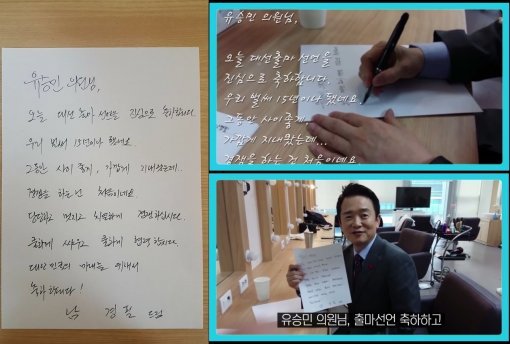 유승민 의원님,
오늘 대선 출마 선언을 진심으로 축하합니다.
우리 벌써 15년이나 됐네요.
그동안 사이 좋게, 가깝게 지내왔는데..
경쟁을 하는 건 처음이네요.
당당하고 멋지고 치열하게 경쟁하십시다.
대한민국의 미래를 위해서
축하합니다!
남 경필 드림
유승민 의원님,
오늘 대선출마 선언을
진심으로 축하합니다.
우리 벌써 15년이나 됐네요
그동안 사이좋게
가깝게 지내왔는데...
경쟁을 하는 건 처음이네요
유승민 의원님, 출마선언 축하하고